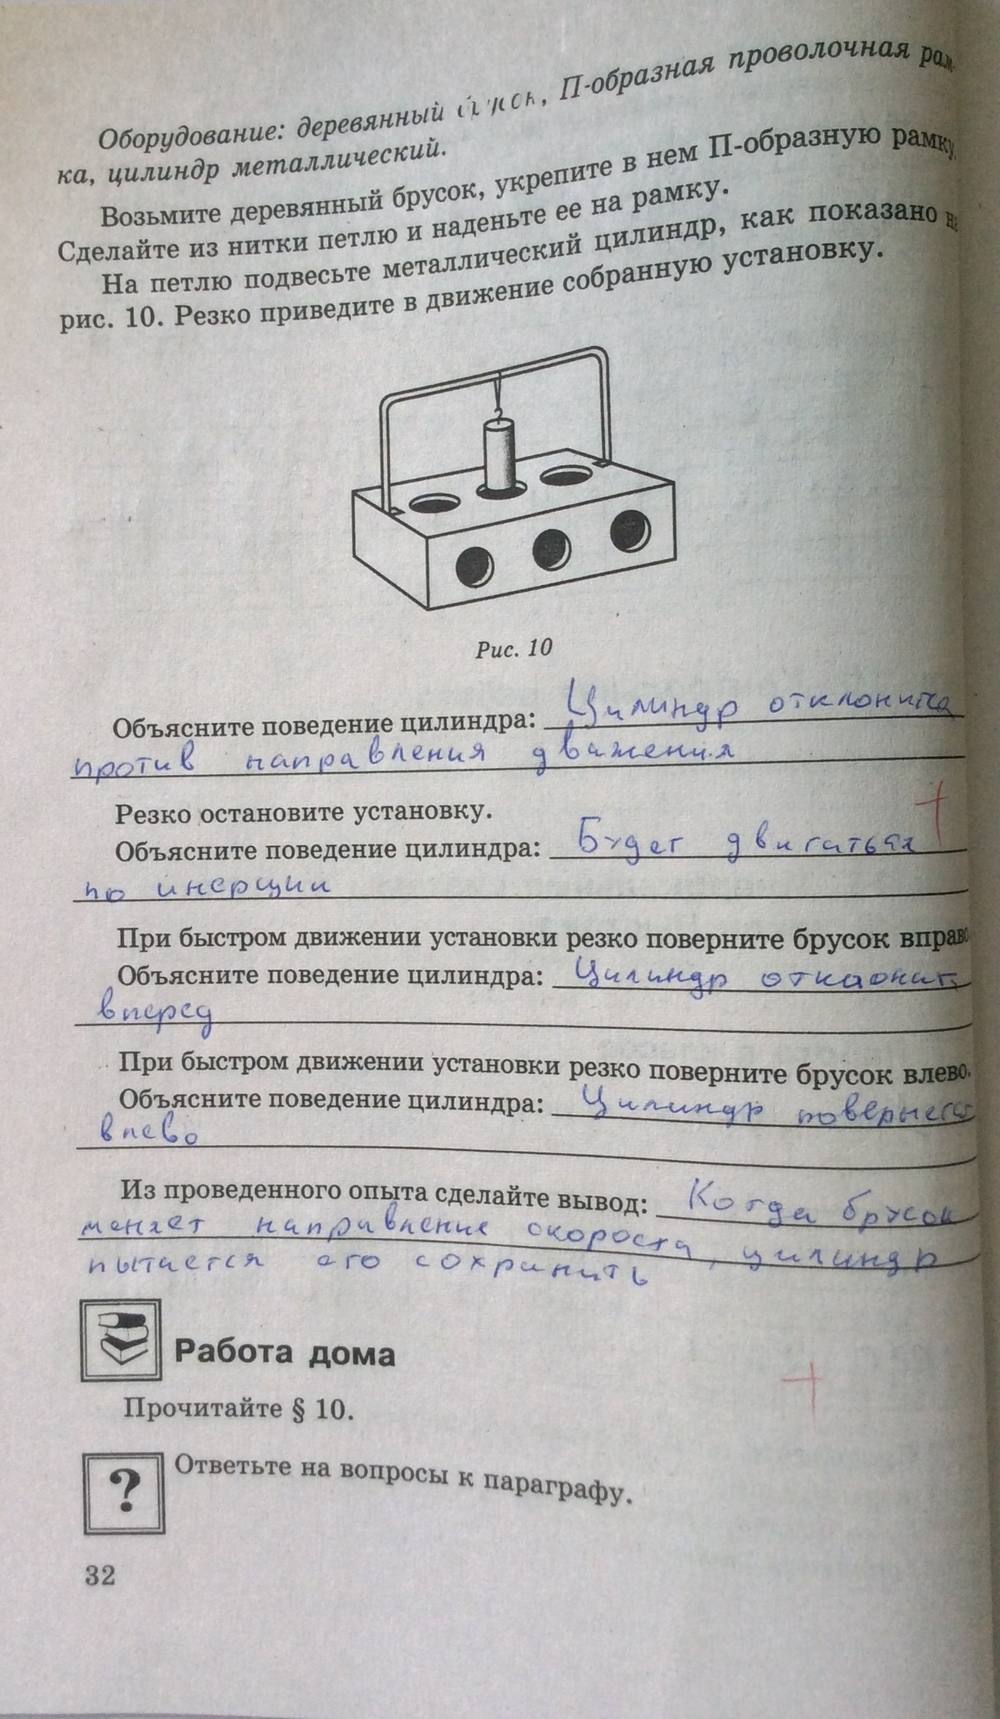 Оборудование: деревянный брусок, П-образная проволочная рам-
ка, цилиндр металлический.
Возьмите деревянный брусок, укрепите в нем П-образную рамку.
Сделайте из нитки петлю и наденьте ее на рамку.
На петлю подвесьте металлический цилиндр, как показано на
рис. 10. Резко приведите в движение собранную установку.
Рис. 10
Объясните поведение цилиндра: Цилиндр отклонится
против направления движения
Резко остановите установку.
Объясните поведение цилиндра: Будет двигаться
по инерции
При быстром движении установки резко поверните брусок вправо.
Объясните поведение цилиндра: Цилиндр отклонит.
вперед
При быстром движении установки резко поверните брусок влево.
Объясните поведение цилиндра: Цилиндр повернется
влево
Из проведенного опыта сделайте вывод: Когда брусок
меняет направление скорости, цилиндр
пытается его сохранить
Работа дома
Прочитайте § 10.
?
Ответьте на вопросы к параграфу.
32